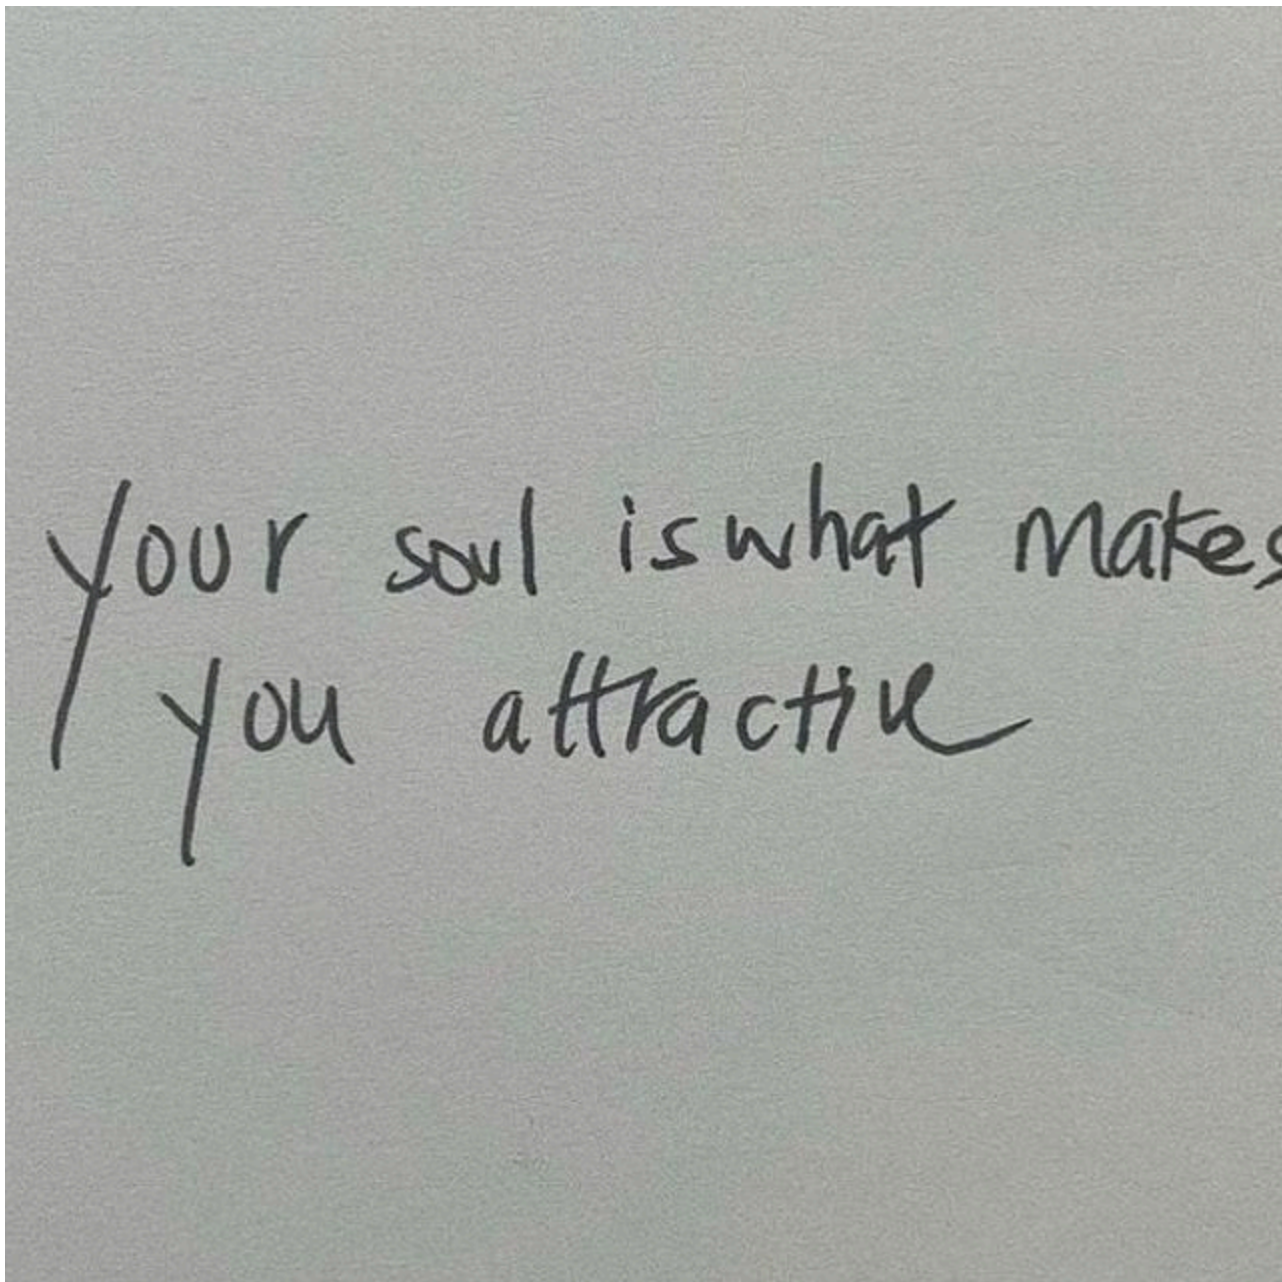 your soul is what makes
you attractive